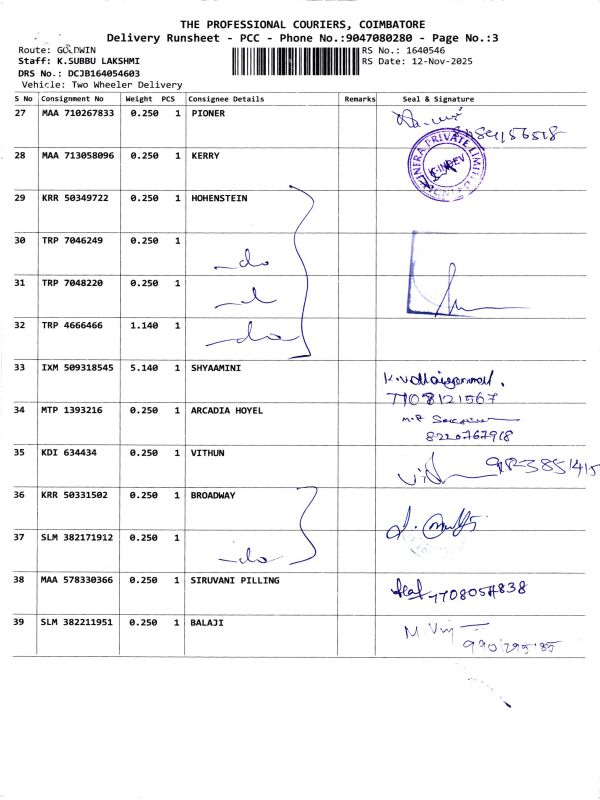 THE PROFESSIONAL COURIERS, COIMBATORE
Delivery Runsheet - PCC - Phone No.:9047080280 - Page No.:3
Route: GOLDWIN
RS No.: 1640546
Staff: K.SUBBU LAKSHMI
RS Date: 12-Nov-2025
DRS No.: DCJB164054603
Vehicle: Two Wheeler Delivery
S No Consignment No Weight PCS Consignee Details Remarks Seal & Signature
27 MAA 710267833 0.250 1 PIONER
28 MAA 713058096 0.250 1 KERRY
INFRA PRIVATE LIMITED
K-INDEV
29 KRR 50349722 0.250 1 HOHENSTEIN
30 TRP 7046249 0.250 1 do
31 TRP 7048220 0.250 1
32 TRP 4666466 1.140 1 do
33 IXM 509318545 5.140 1 SHYAAMINI
7708121567
34 MTP 1393216 0.250 1 ARCADIA HOYEL
8220767918
35 KDI 634434 0.250 1 VITHUN
9823851415
36 KRR 50331502 0.250 1 BROADWAY
37 SLM 382171912 0.250 1 do
38 MAA 578330366 0.250 1 SIRUVANI PILLING
39 SLM 382211951 0.250 1 BALAJI